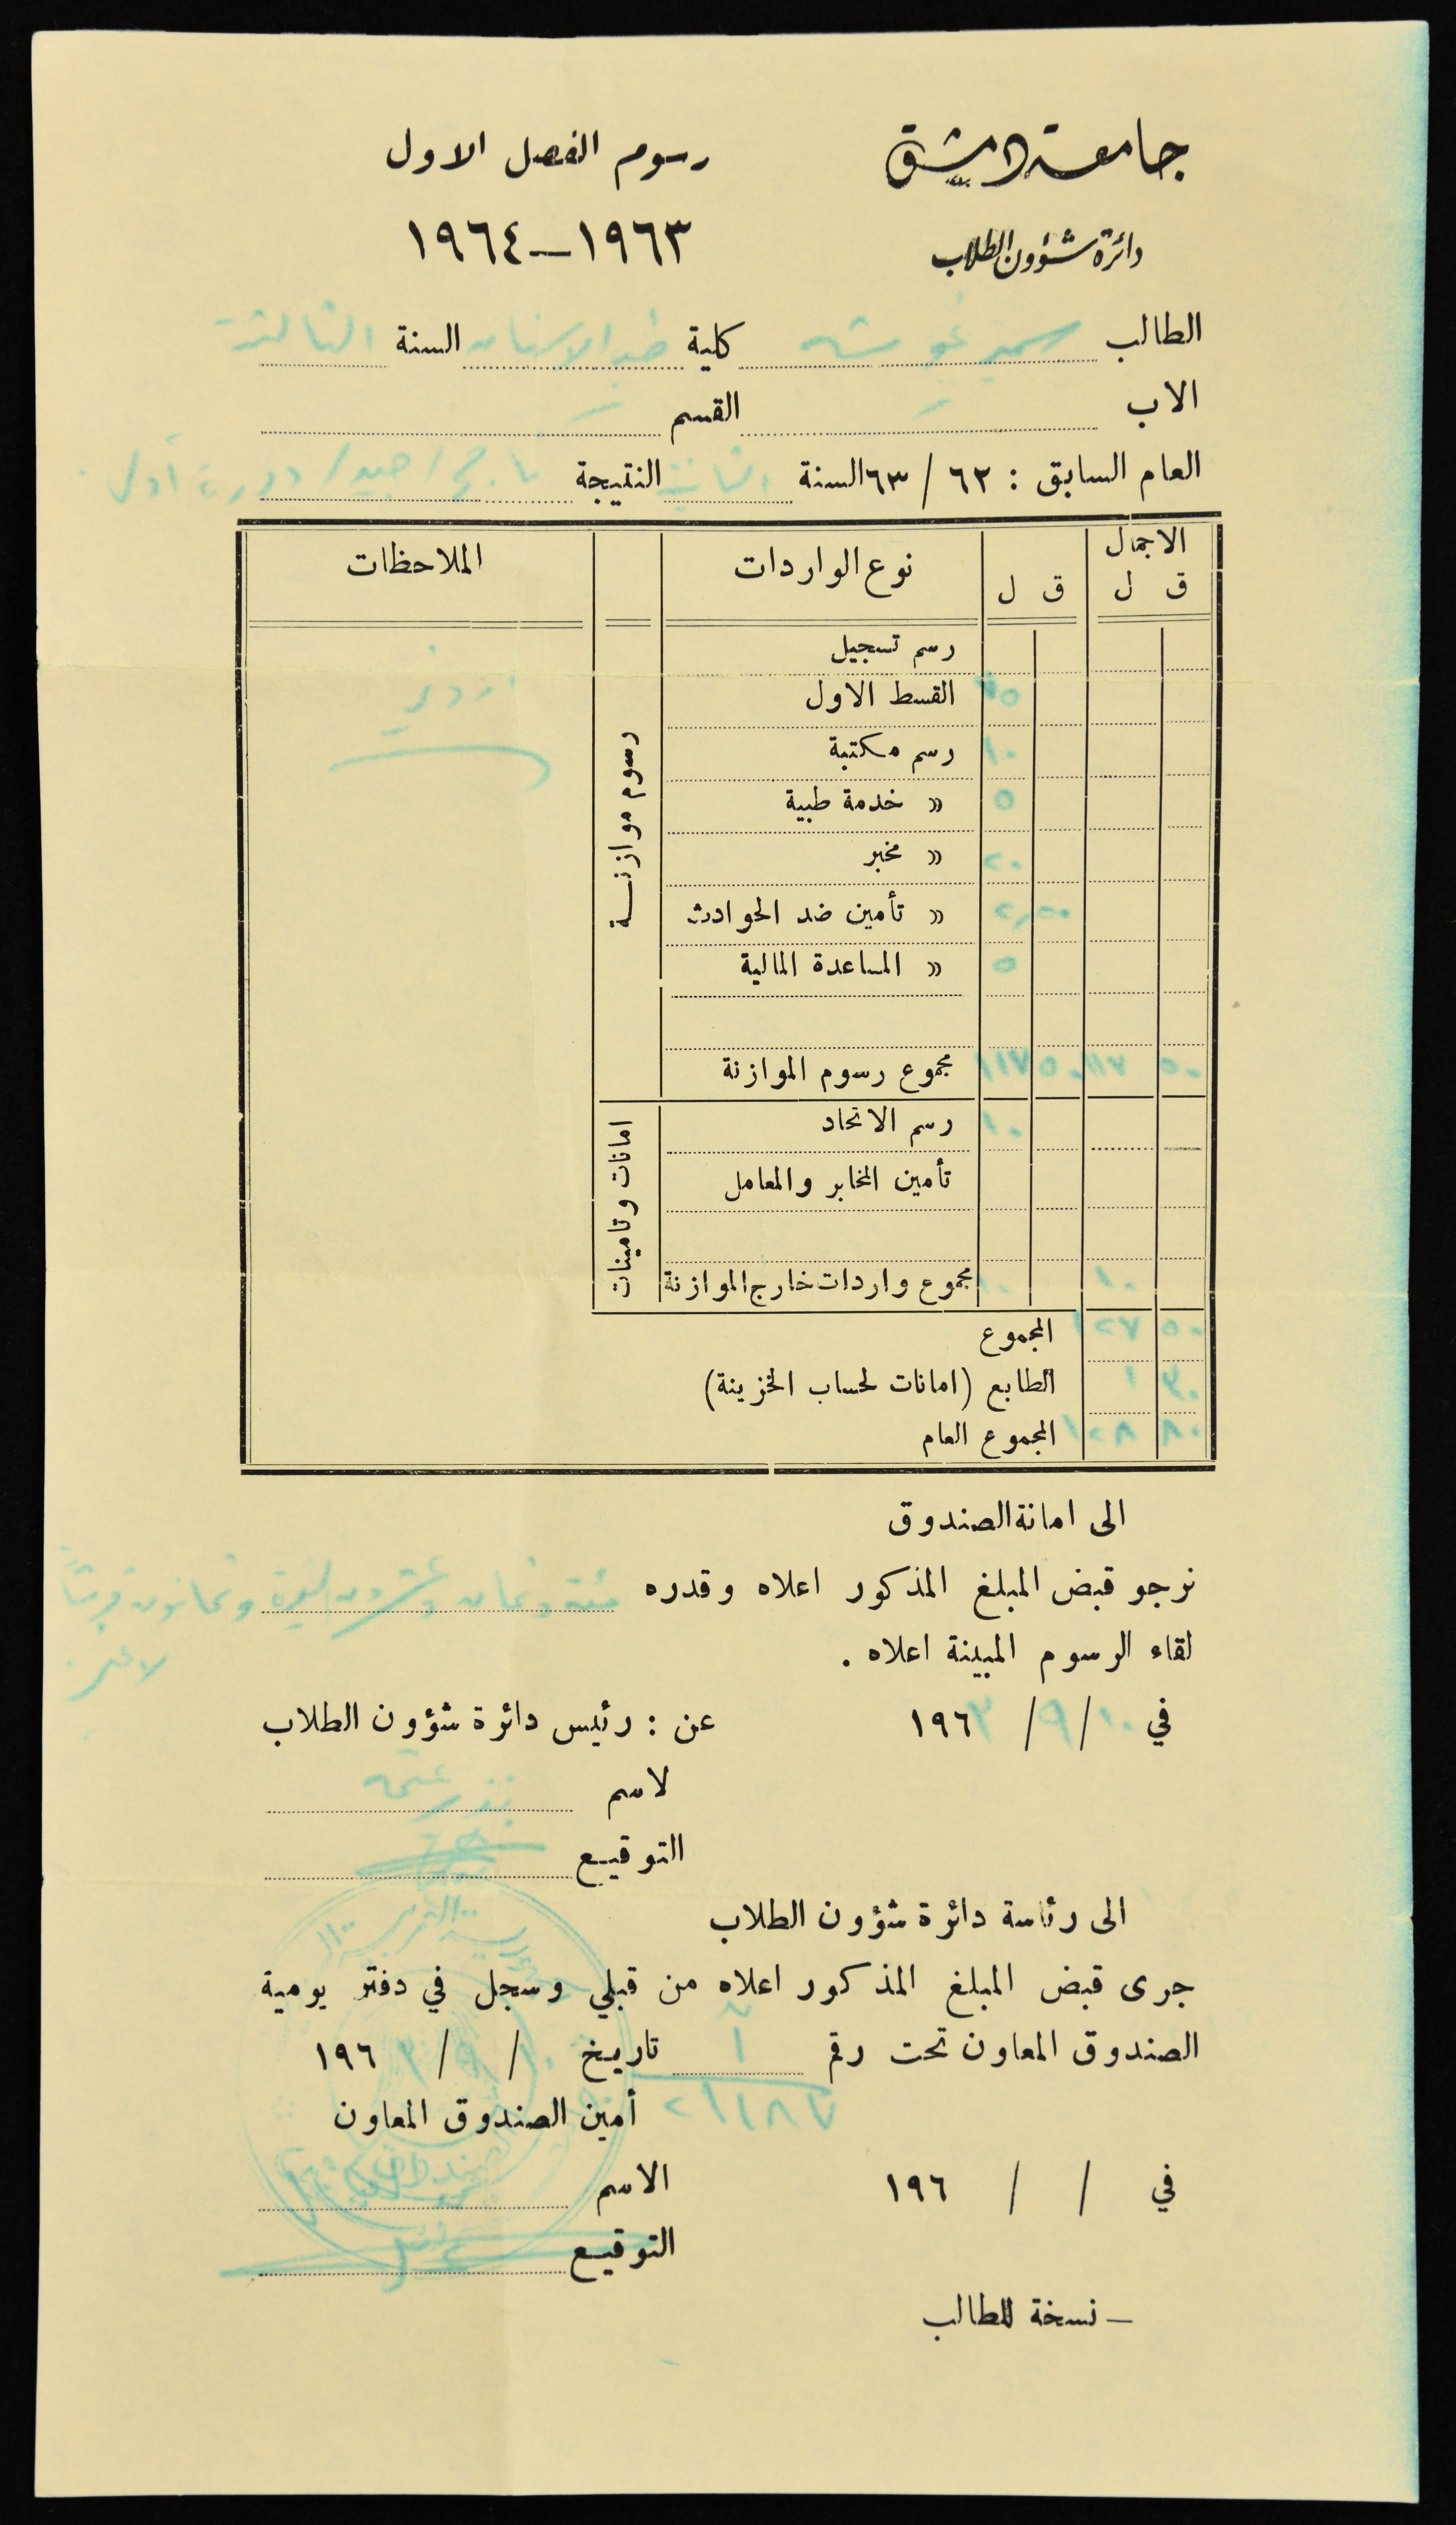 جامعة دمشق
دائرة شؤون الطلاب
رسوم الفصل الاول
١٩٦٣–١٩٦٤
الطالب سمير غوشه كلية طب الاسنان السنة الثالثة
الاب – القسم –
العام السابق : ٦٢ / ٦٣ السنة الثانية النتيجة ناجح / جيد / دورة أولى
الاجمال
ق ل ق ل نوع الواردات الملاحظات
رسم تسجيل
القسط الاول ٧٥
اردني
رسم مكتبة ١٠
« خدمة طبية ٥
« مخبر ٢٠
« تأمين ضد الحوادث ٢,٥٠
« المساعدة المالية ٥
رسوم موازنة
٥٠ ١١٧ ٥٠ ١١٧ مجموع رسوم الموازنة
١٠ رسم الاتحاد
تأمين المخابر والمعامل
١٠ ١٠ مجموع واردات خارج الموازنة
امانات وتامينات
٥٠ ١٢٧ المجموع
٣٠ ١ الطابع (امانات لحساب الخزينة)
٨٠ ١٢٨ المجموع العام
الى امانة الصندوق
نرجو قبض المبلغ المذكور اعلاه وقدره مئة وثمان وعشرون ليرة وثمانون قرشاً
لاغير .
لقاء الرسوم المبينة اعلاه .
في ١٠ / ٩ / ١٩٦٣
عن : رئيس دائرة شؤون الطلاب
لاسم
التوقيع
الى رئاسة دائرة شؤون الطلاب
جرى قبض المبلغ المذكور اعلاه من قبلي وسجل في دفتر يومية
الصندوق المعاون تحت رقم آ تاريخ ١٠ / ٩ / ١٩٦٣
٢٦١٨٧
أمين الصندوق المعاون
في / / ١٩٦
الاسم
التوقيع
– نسخة للطالب